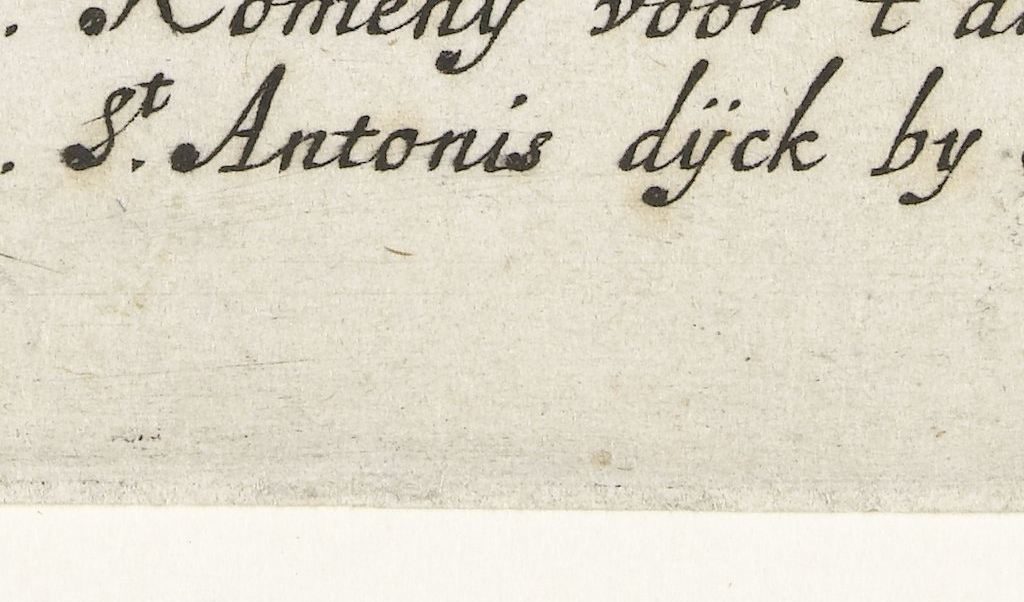 . Romeny voor 't
. St. Antonis dijck by